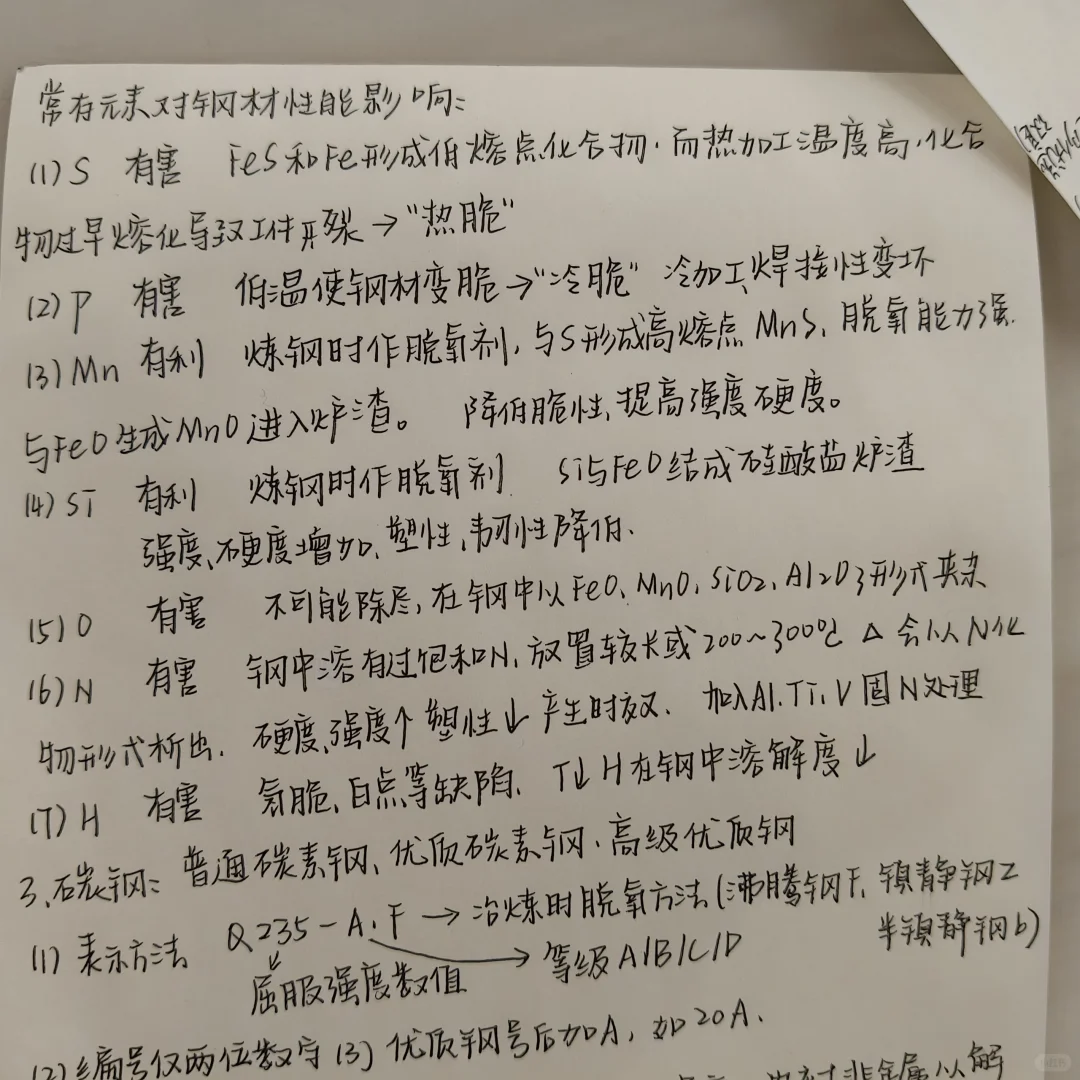 常有元素对钢材性能影响:
(1) S 有害 FeS和Fe形成低熔点化合物.而热加工温度高,化合
物过早熔化导致工件开裂→"热脆"
(2) P 有害 低温使钢材变脆→"冷脆" 冷加工、焊接性变坏
(3) Mn 有利 炼钢时作脱氧剂,与S形成高熔点MnS、脱氧能力强.
与FeO生成MnO进入炉渣。 降低脆性,提高强度硬度。
(4) Si 有利 炼钢时作脱氧剂 Si与FeO结成硅酸盐炉渣
强度、硬度增加,塑性、韧性降低.
(5) O 有害 不可能除尽,在钢中以FeO、MnO、SiO2、Al2O3形式夹杂
(6) N 有害 钢中溶有过饱和N,放置较长或200~300℃ △ 会以N化
物形式析出. 硬度、强度↑ 塑性↓ 产生时效. 加入Al.Ti.V固N处理
(7) H 有害 氢脆、白点等缺陷. T↓ H在钢中溶解度↓
3.碳钢: 普通碳素钢、优质碳素钢.高级优质钢
(1) 表示方法 Q235-A.F → 冶炼时脱氧方法(沸腾钢F、镇静钢Z
半镇静钢b)
→ 等级A/B/C/D
屈服强度数值
(2) 编号仅两位数字 (3) 优质钢号后加A,如20A.
非金属以解